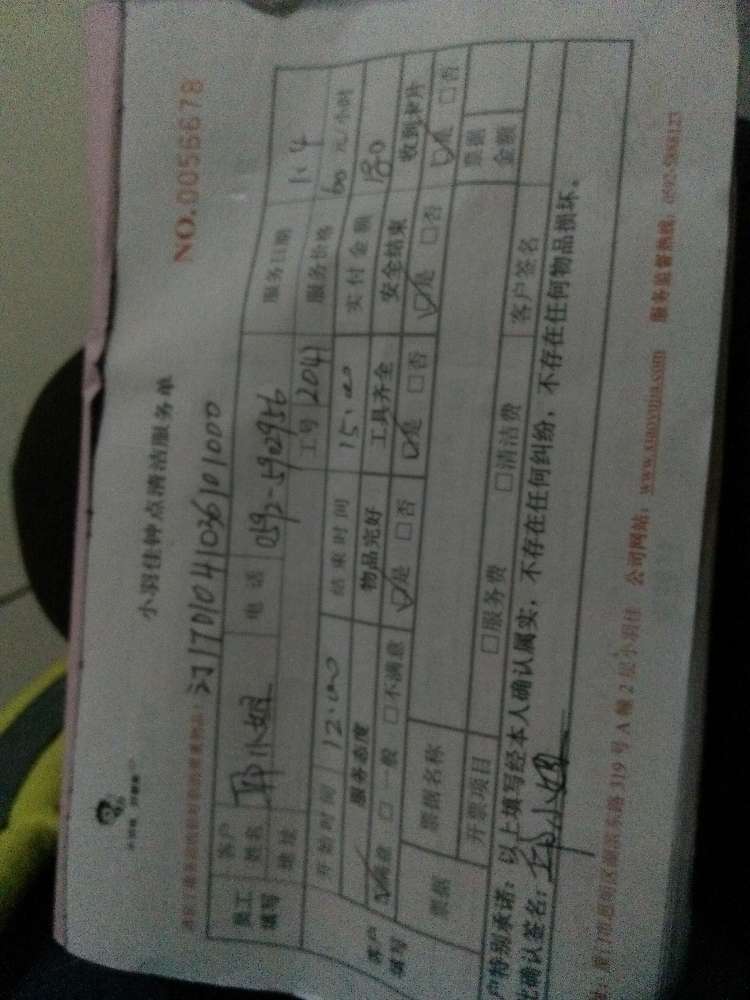 小羽佳钟点清洁服务单
NO.0056678
订170104103610 1000
员工填写
客户姓名 郭小姐 电话 0592-5902956 服务日期 1.4
地址 工号 2041 服务价格 60元/小时
开始时间 12:00 结束时间 15:00 实付金额 180
客户填写
服务态度 物品完好 工具齐全 安全结束 收到卡片
☑满意 □一般 □不满意 ☑是 □否 ☑是 □否 ☑是 □否 ☑是 □否
票据 票据名称 票据金额
开票项目 □服务费 □清洁费 客户签名
户特别承诺:以上填写经本人确认属实,不存在任何纠纷,不存在任何物品损坏。
确认签名:郭小姐
厦门市思明区湖滨东路319号A幢2层小羽佳 公司网站:www.xiaoyujia.com 服务监督热线:0592-5886123